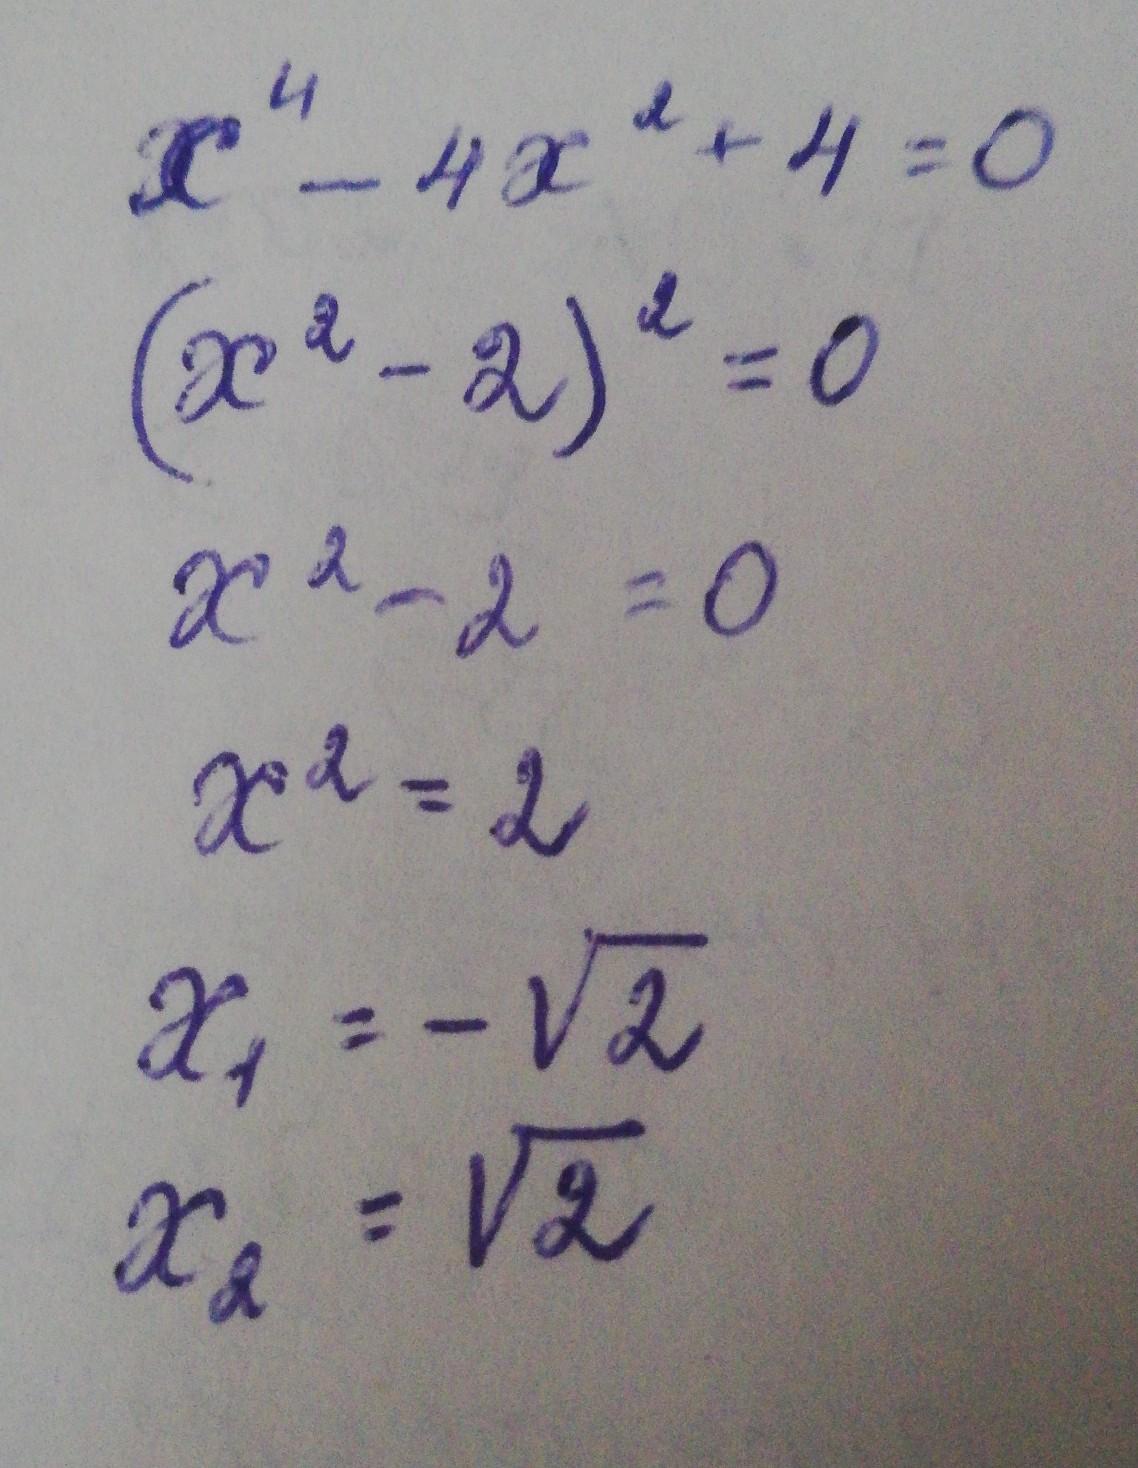 x⁴ - 4x² + 4 = 0
(x² - 2)² = 0
x² - 2 = 0
x² = 2
x₁ = -√2
x₂ = √2